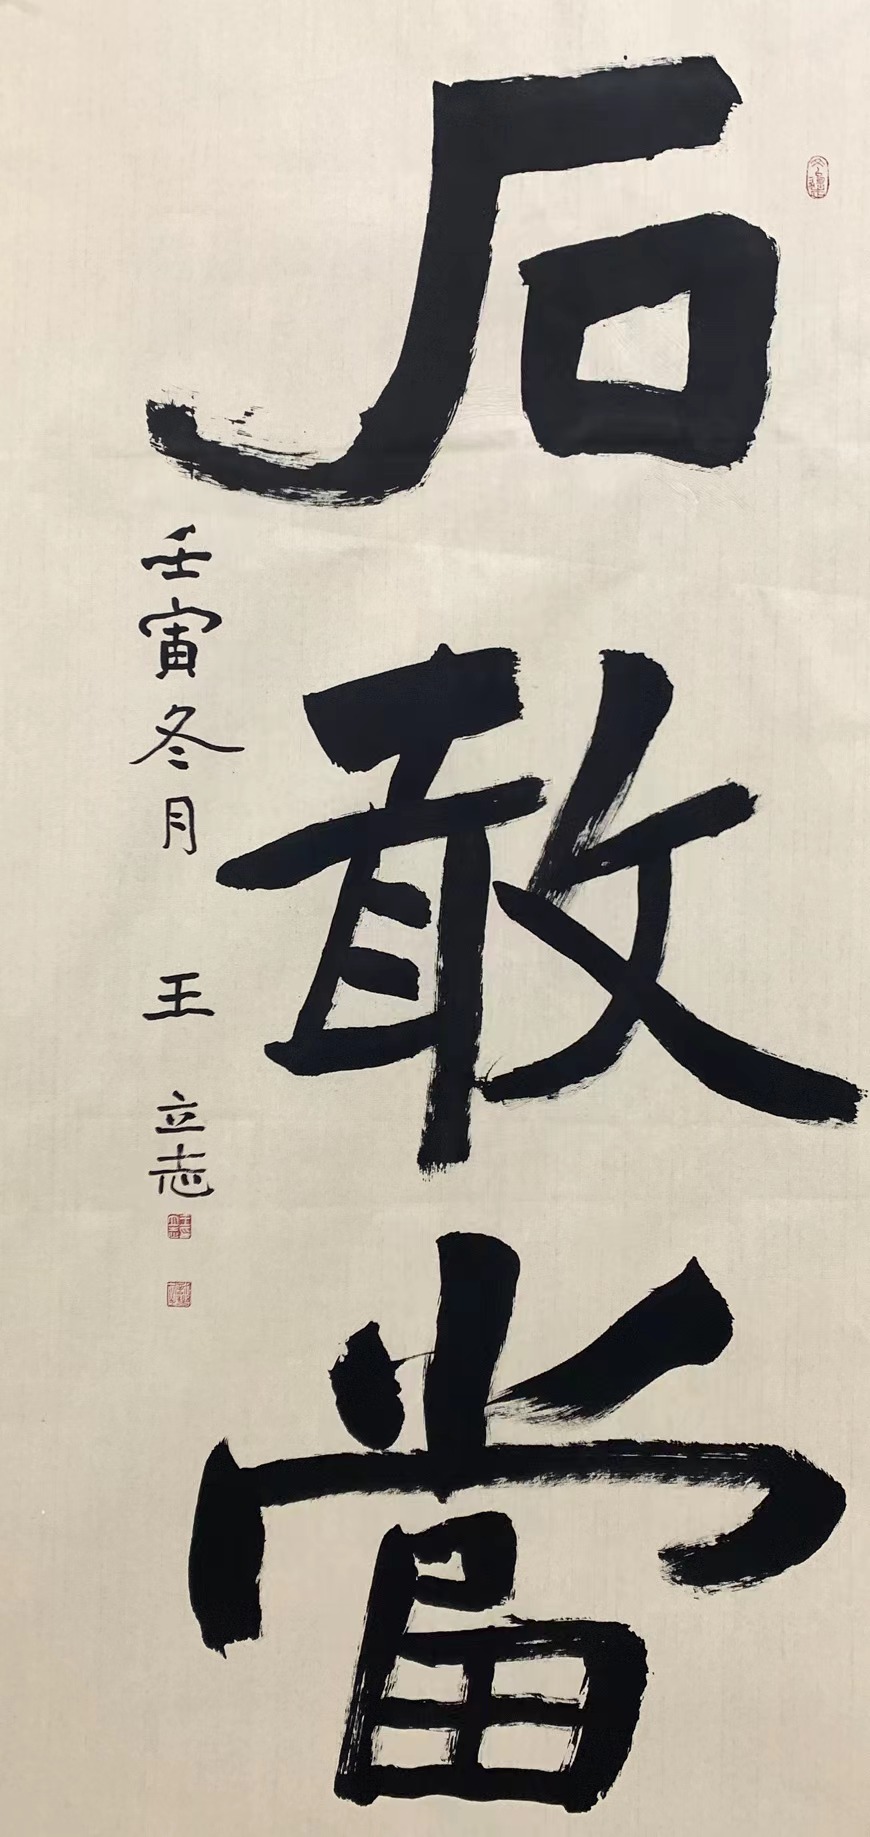 石敢當
壬寅冬月 王立志